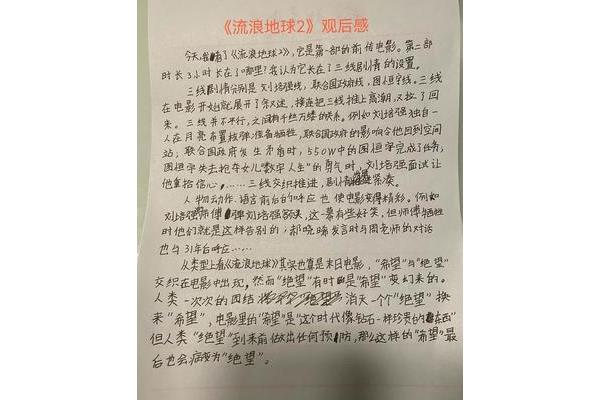 《流浪地球2》观后感
今天,我看了《流浪地球2》,它是第一部的前传电影。第二部
时长3小时长在了哪里?我认为它长在了三线剧情的设置。
三线剧情分别是刘培强线,联合国政府线,图恒宇线。三线
在电影开始就展开了叙述,接连把三线推上高潮,又拉了回
来。三线并不平行,之间有千丝万缕的关系。例如刘培强独自一
人在月亮布置核弹准备牺牲,联合国政府的影响令他回到空间
站;联合国政府发生矛盾时,550W中的图恒宇完成了任务;
图恒宇失去抢车女儿"数字人生"的勇气时,刘培强面试让
他重拾信心,……三线交织推进,剧情紧凑。
人物动作、语言前后的呼应也使电影变得精彩。例如
刘培强师傅弹刘培强额头,这一幕有些好笑,但师傅牺牲
时他们就是这样告别的;郝晓晞发言时与周老师的对话
也与31年台呼应……
从类型上看《流浪地球2》其实也算是末日电影,"希望"与"绝望"
交织在电影中出现,然而"绝望"有时是"希望"变幻来的。
人类一次次的团结消灭一个个"绝望"换
来"希望",电影里的"希望"是"这个时代像钻石一样珍贵的东西"
但人类"绝望"到来前做出任何预防,那么这样的"希望"最
后也会演变为"绝望"。